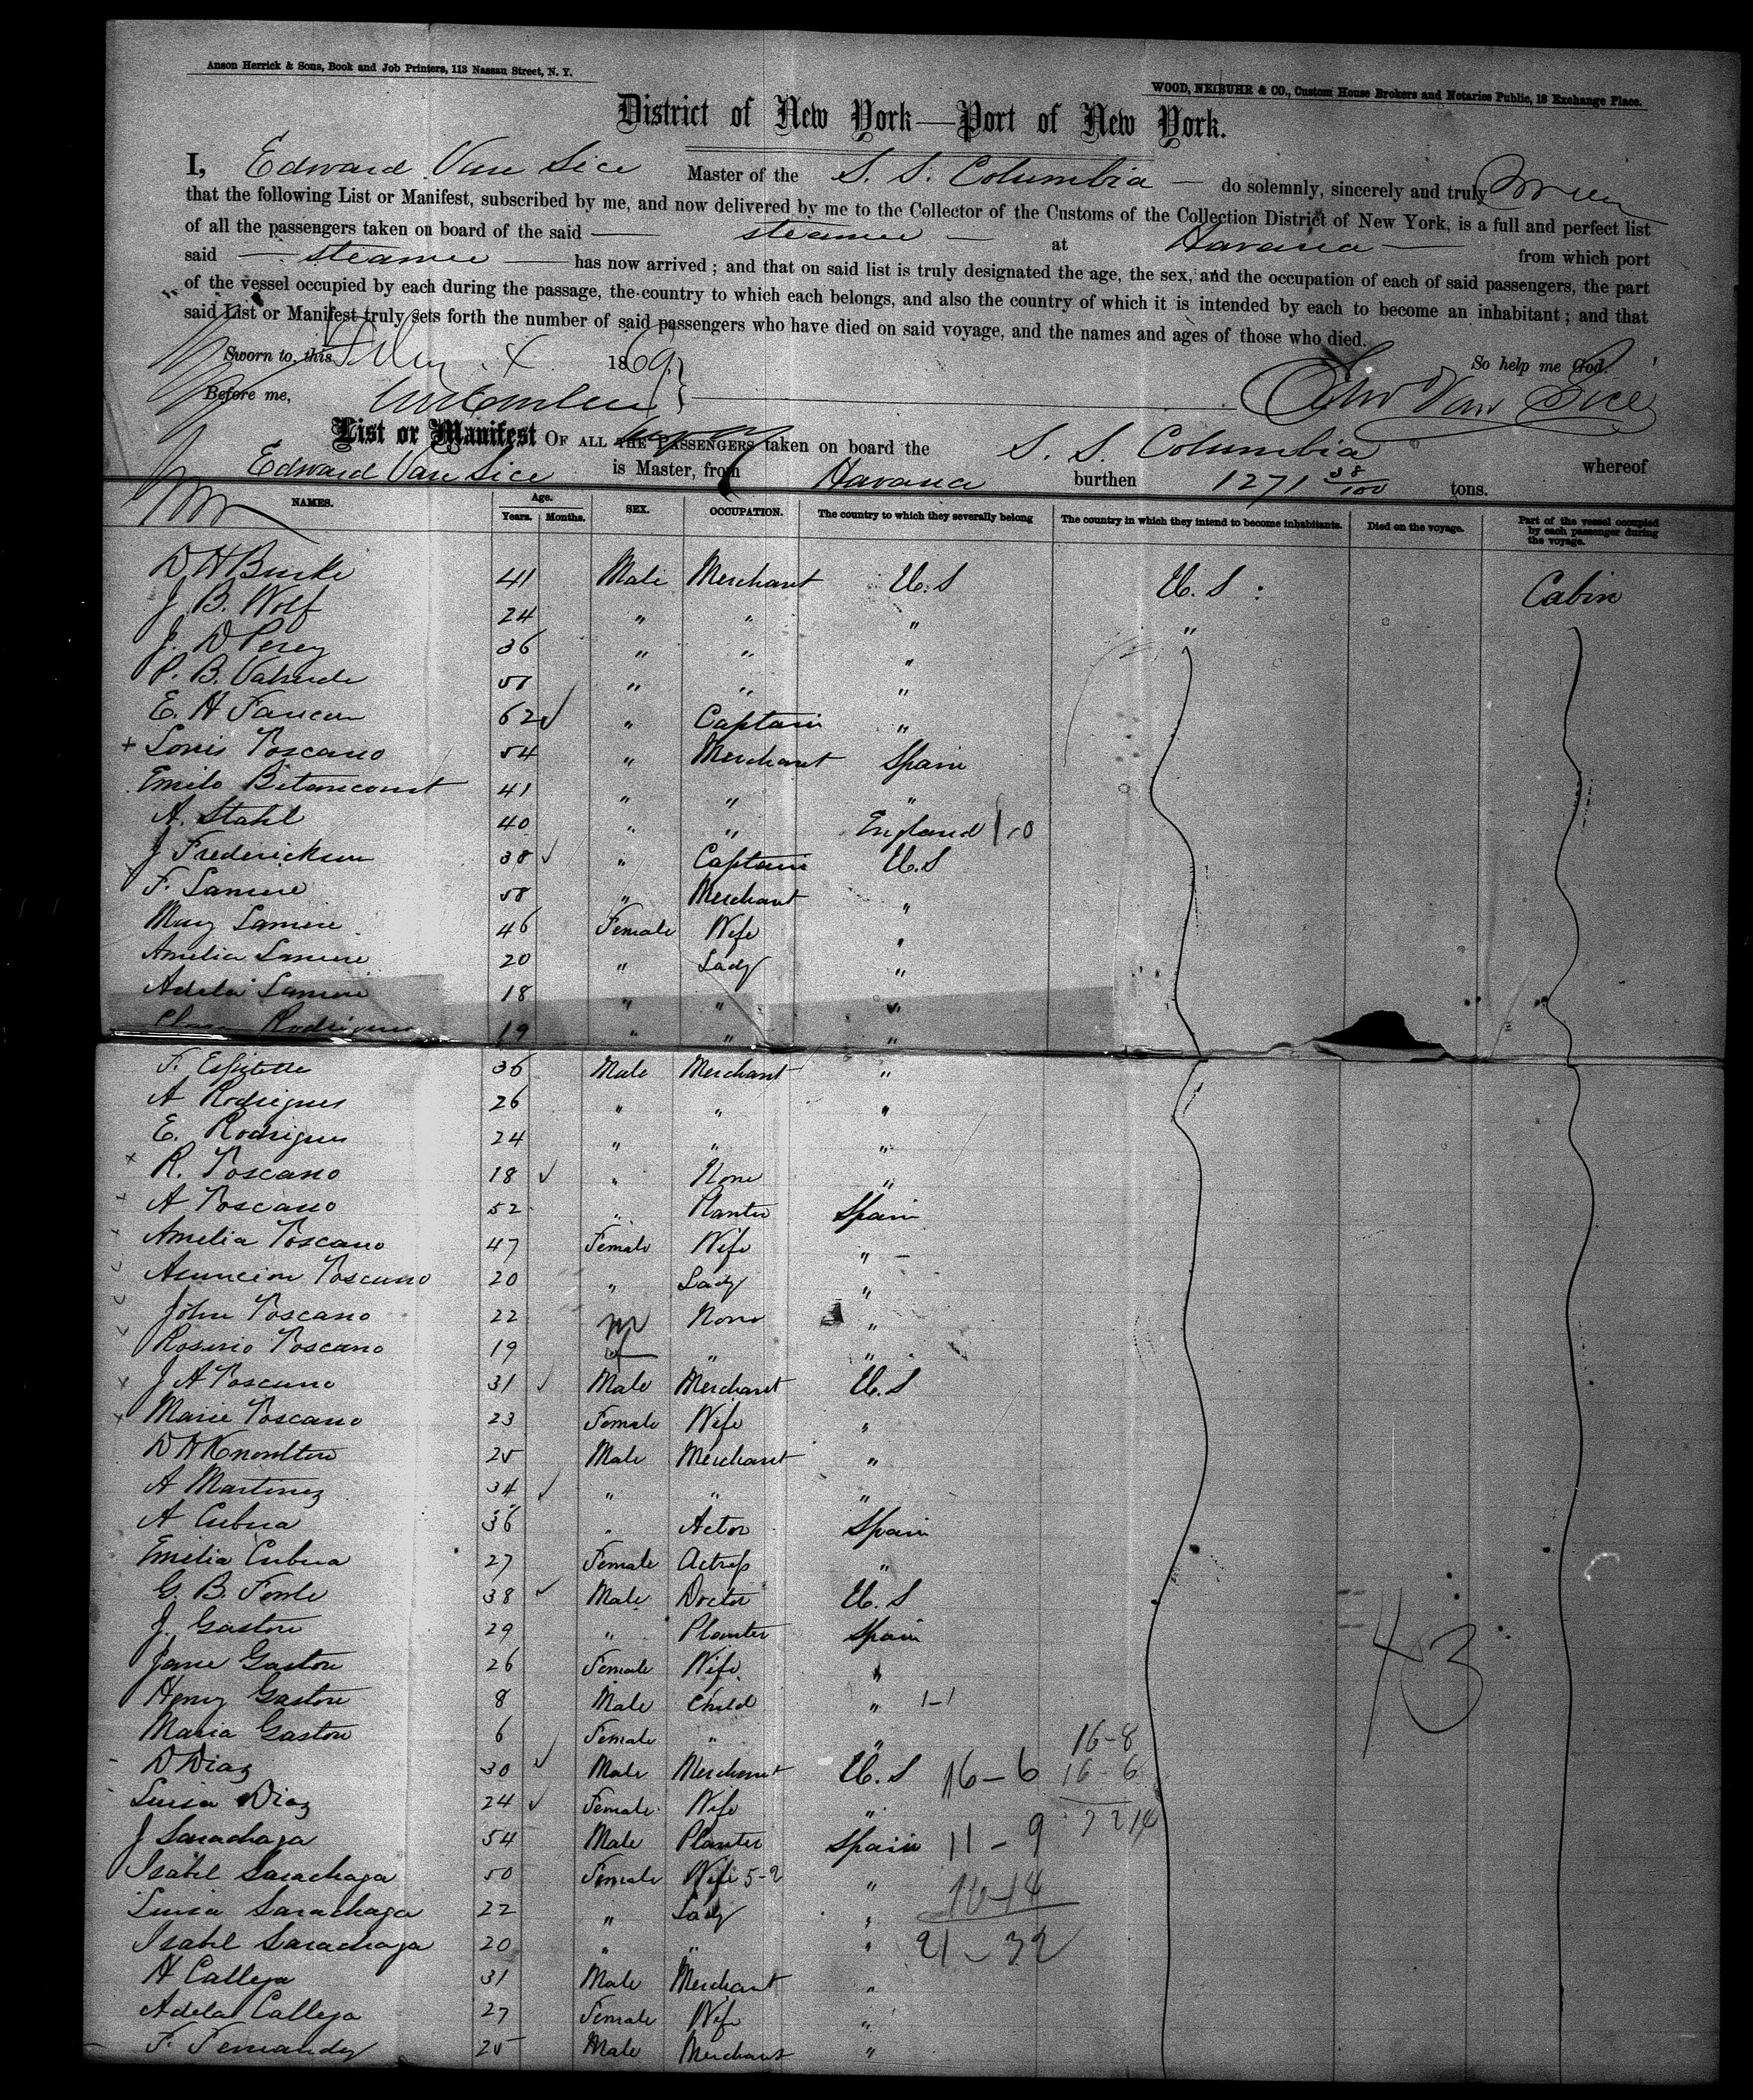 Anson Herrick & Sons, Book and Job Printers, 113 Nassau Street, N. Y.
WOOD, NEIBUHR & CO., Custom House Brokers and Notaries Public, 18 Exchange Place.
District of New York—Port of New York.
I, Edward Van Sice Master of the S. S. Columbia — do solemnly, sincerely and truly
that the following List or Manifest, subscribed by me, and now delivered by me to the Collector of the Customs of the Collection District of New York, is a full and perfect list
of all the passengers taken on board of the said — steamer — at Havana — from which port
said — steamer — has now arrived; and that on said list is truly designated the age, the sex, and the occupation of each of said passengers, the part
of the vessel occupied by each during the passage, the country to which each belongs, and also the country of which it is intended by each to become an inhabitant; and that
said List or Manifest truly sets forth the number of said passengers who have died on said voyage, and the names and ages of those who died.
Sworn to, this 1869. So help me God.
Before me, Edw Van Sice
List or Manifest OF ALL THE PASSENGERS taken on board the S. S. Columbia whereof
Edward Van Sice is Master, from Havana burthen 1271 38/100 tons.
NAMES. Age. Years. Months. SEX. OCCUPATION. The country to which they severally belong The country in which they intend to become inhabitants. Died on the voyage. Part of the vessel occupied by each passenger during the voyage.
D H Burke 41 Male Merchant U. S U. S : Cabin
J. B. Wolf 24 " " " "
J. D Perey 36 " " "
P. B. Valverde 51 " " "
E. H Faucon 62 ✓ " Captain "
+ Louis Toscano 54 " Merchant Spain
Emilo Betancourt 41 " " "
A. Stahl 40 " " England 1-0
J Frederickson 38 ✓ " Captain U. S
F. Lamere 58 " Merchant "
Mary Lamere 46 Female Wife "
Amelia Lamere 20 " Lady "
Adela Lamere 18 " " "
Rodrigues 19 " " "
F. 36 Male Merchant "
A Rodrigues 26 " " "
E. Rodrigues 24 " " "
x R. Toscano 18 ✓ " None "
x A Toscano 52 " Planter Spain
Amelia Toscano 47 Female Wife " –
Asuncion Toscano 20 " Lady "
John Toscano 22 M None "
Rosario Toscano 19 f " "
x J A Toscano 31 ✓ Male Merchant U. S
x Marie Toscano 23 Female Wife "
D W Knowlton 25 Male Merchant "
A Martinez 34 ✓ " " "
A Cubua 36 " Actor Spain
Emilia Cubua 27 Female Actress "
G. B. Fowle 38 ✓ Male Doctor U. S
J. Gaston 29 " Planter Spain
Jane Gaston 26 Female Wife "
Henry Gaston 8 Male Child " 1-1
Maria Gaston 6 Female " " 16-8
D Diaz 30 ✓ Male Merchant U. S 16-6 16-6
Luisa Diaz 24 ✓ Female Wife " 32 14
J Sarachaga 54 Male Planter Spain 11-9
Isabel Sarachaga 50 Female Wife 5-2 " 10-14
Luisa Sarachaga 22 " Lady "
Isabel Sarachaga 20 " " " 21-32
H Calleja 31 Male Merchant "
Adela Calleja 27 Female Wife "
F. Fernandez 25 Male Merchant "
43